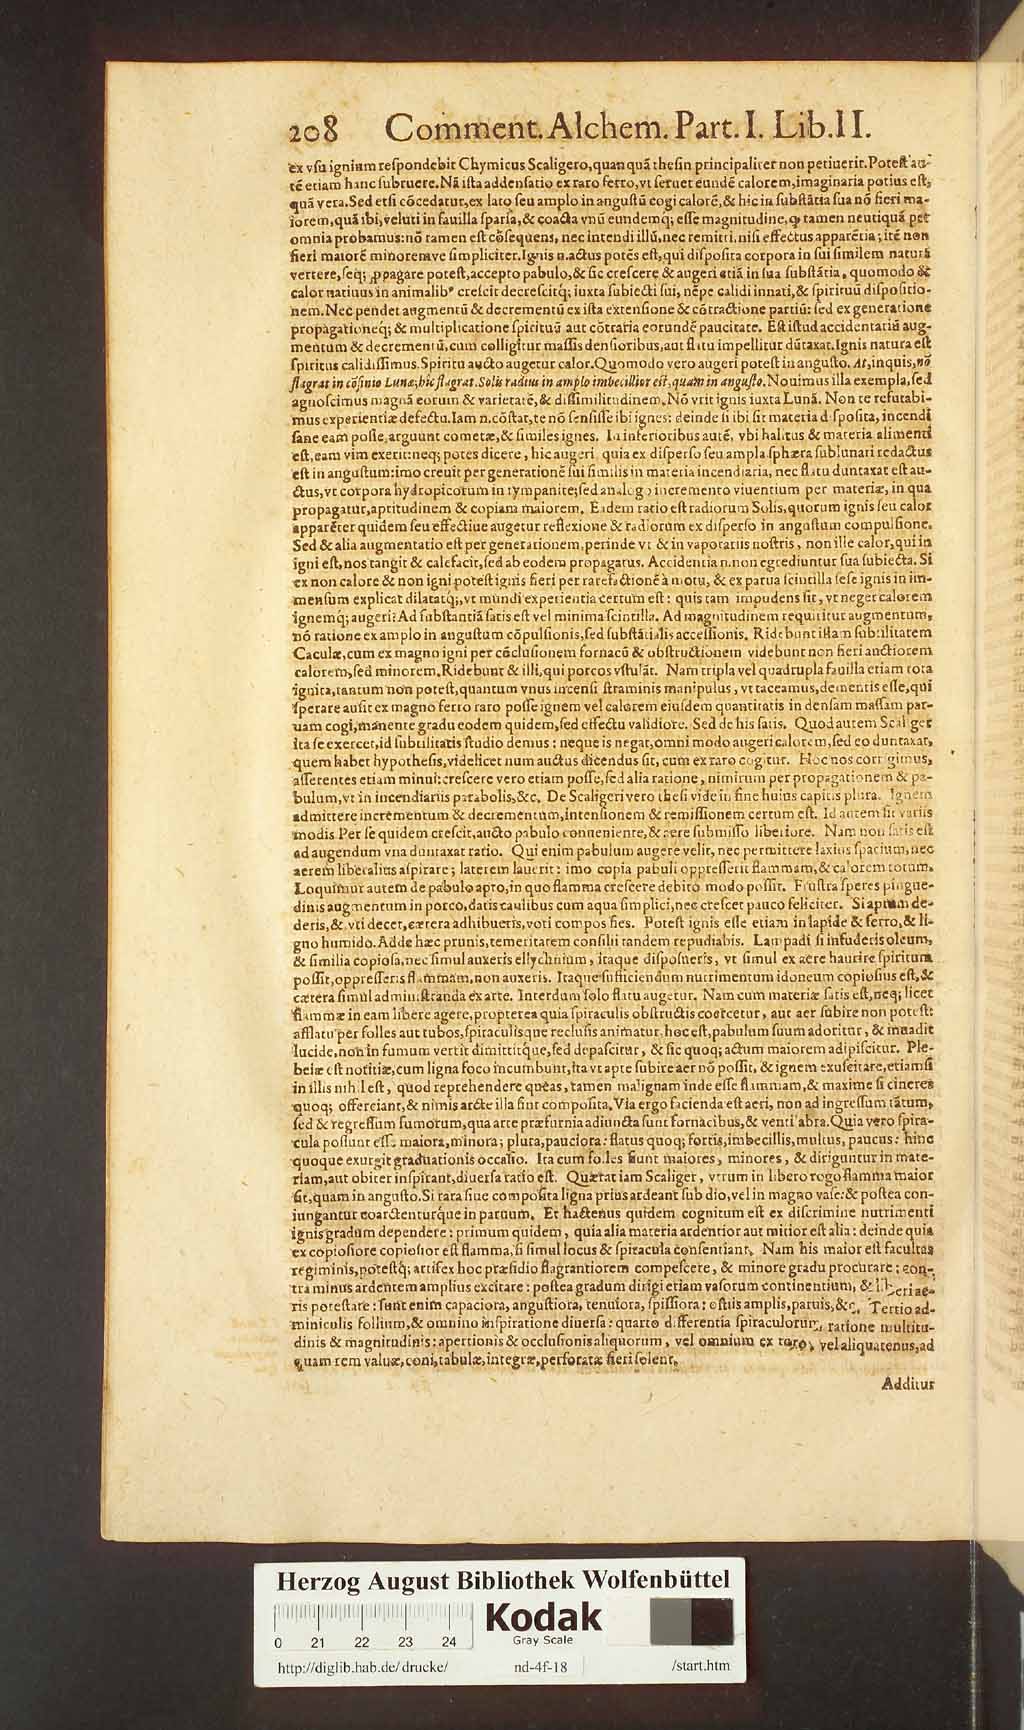 208 Comment. Alchem. Part. I. Lib. II.
ex vsu ignium respondebit Chymicus Scaligero, quanquã thesin principaliter non petiuerit. Potest au-
tẽ etiam hanc subruere. Nã ista addensatio ex raro ferro, vt seruet eundẽ calorem, imaginaria potius est,
quã vera. Sed etsi cõcedatur, ex lato seu amplo in angustũ cogi calorẽ, & hic in substãtia sua nõ fieri ma-
iorem, quã ibi, veluti in fauilla sparsa, & coacta vnũ eundemq; esse magnitudine, ꝙ tamen neutiquã per
omnia probamus: nõ tamen est cõsequens, nec intendi illũ, nec remitti, nisi effectus apparẽtia; itẽ non
fieri maiorẽ minoremve simpliciter. Ignis n. actus potẽs est, qui disposita corpora in sui similem naturã
vertere, seq; ꝓpagare potest, accepto pabulo, & sic crescere & augeri etiã in sua substãtia, quomodo &
calor natiuus in animalibꝰ crescit decrescitq; iuxta subiecti sui, nẽpe calidi innati, & spirituũ dispositio-
nem. Nec pendet augmentũ & decrementũ ex ista extensione & cõtractione partiũ: sed ex generatione
propagationeq; & multiplicatione spirituũ aut cõtraria eorundẽ paucitate. Est istud accidentariũ aug-
mentum & decrementũ, cum colligitur massis densioribus, aut flatu impellitur dũtaxat. Ignis natura est
spiritus calidissimus. Spiritu aucto augetur calor. Quomodo vero augeri potest in angusto. At, inquis, nõ
flagrat in cõfinio Lunæ; hic flagrat. Solis radius in amplo imbecillior est, quam in angusto. Nouimus illa exempla, sed
agnoscimus magnã eorum & varietatẽ, & dissimilitudinem. Nõ vrit ignis iuxta Lunã. Non te refutabi-
mus experientiæ defectu. Iam n. cõstat, te nõ sensisse ibi ignes: deinde si ibi sit materia disposita, incendi
sane eam posse, arguunt cometæ, & similes ignes. In inferioribus autẽ, vbi halitus & materia alimenti
est, eam vim exerit: neq; potes dicere, hic augeri quia ex disperso seu ampla sphæra sublunari redactus
est in angustum: imo creuit per generationẽ sui similis in materia incendiaria, nec flatu duntaxat est au-
ctus, vt corpora hydropicorum in tympanite; sed analogo incremento viuentium per materiæ, in qua
propagatur, aptitudinem & copiam maiorem. Eadem ratio est radiorum Solis, quorum ignis seu calor
apparẽter quidem seu effectiue augetur reflexione & radiorum ex disperso in angustum compulsione.
Sed & alia augmentatio est per generationem, perinde vt & in vaporariis nostris, non ille calor, qui in
igni est, nos tangit & calefacit, sed ab eodem propagatus. Accidentia n. non egrediuntur sua subiecta. Si
ex non calore & non igni potest ignis fieri per rarefactionẽ à motu, & ex parua scintilla sese ignis in im-
mensum explicat dilatatq;, vt mundi experientia certum est: quis tam impudens sit, vt neget calorem
ignemq; augeri? Ad substantiã satis est vel minima scintilla. Ad magnitudinem requiritur augmentum,
nõ ratione ex amplo in angustum cõpulsionis, sed substãtialis accessionis. Ridebunt istam subtilitatem
Caculæ, cum ex magno igni per cõclusionem fornacũ & obstructionem videbunt non fieri auctiorem
calorem, sed minorem. Ridebunt & illi, qui porcos vstulãt. Nam tripla vel quadrupla fauilla etiam tota
ignita, tantum non potest, quantum vnus incensi straminis manipulus, vt taceamus, dementis esse, qui
sperare ausit ex magno ferro raro posse ignem vel calorem eiusdem quantitatis in densam massam par-
uam cogi, manente gradu eodem quidem, sed effectu validiore. Sed de his satis. Quod autem Scaliger
ita se exercet, id subtilitatis studio demus: neque is negat, omni modo augeri calorem, sed eo duntaxat,
quem habet hypothesis, videlicet num auctus dicendus sit, cum ex raro cogitur. Hoc nos corrigimus,
asserentes etiam minui: crescere vero etiam posse, sed alia ratione, nimirum per propagationem & pa-
bulum, vt in incendiariis parabolis, &c. De Scaligeri vero thesi vide in fine huius capitis plura. Ignem
admittere incrementum & decrementum, intensionem & remissionem certum est. Id autem fit variis
modis. Per se quidem crescit, aucto pabulo conueniente, & aere submisso liberiore. Nam non satis est
ad augendum vna duntaxat ratio. Qui enim pabulum augere velit, nec permittere laxius spacium, nec
aerem liberalius aspirare; laterem lauerit: imo copia pabuli oppresserit flammam, & calorem totum.
Loquimur autem de pabulo apto, in quo flamma crescere debito modo possit. Frustra speres pingue-
dinis augmentum in porco, datis caulibus cum aqua simplici, nec crescet pauco feliciter. Si aptum de-
deris, & vti decet, cætera adhibueris, voti compos fies. Potest ignis esse etiam in lapide & ferro, & li-
gno humido. Adde hæc prunis, temeritatem consilii tandem repudiabis. Lampadi si infuderis oleum,
& similia copiosa, nec simul auxeris ellychnium, itaque disposueris, vt simul ex aere haurire spiritum
possit, oppresseris flammam, non auxeris. Itaque sufficiendum nutrimentum idoneum copiosius est, &
cætera simul administranda ex arte. Interdum solo flatu augetur. Nam cum materiæ satis est, neq; licet
flammæ in eam libere agere, propterea quia spiraculis obstructis coercetur, aut aer subire non potest:
afflatu per folles aut tubos, spiraculisque reclusis animatur, hoc est, pabulum suum adoritur, & inuadit
lucide, non in fumum vertit dimittitq́ue, sed depascitur, & sic quoq; actum maiorem adipiscitur. Ple-
beiæ est notitiæ, cum ligna foco incumbunt, ita vt apte subire aer nõ possit, & ignem exuscitare, etiamsi
in illis nihil est, quod reprehendere queas, tamen malignam inde esse flammam, & maxime si cineres
quoq; officiant, & nimis arcte illa sint composita. Via ergo facienda est aeri, non ad ingressum tãtum,
sed & regressum fumorum, qua arte præfurnia adiuncta sunt fornacibus, & ventilabra. Quia vero spira-
cula possunt esse maiora, minora; plura, pauciora: flatus quoq; fortis, imbecillis, multus, paucus: hinc
quoque exurgit graduationis occasio. Ita cum folles fiunt maiores, minores, & diriguntur in mate-
riam, aut obiter inspirant, diuersa ratio est. Quærat iam Scaliger, vtrum in libero rogo flamma maior
sit, quam in angusto. Si rara siue composita ligna prius ardeant sub dio, vel in magno vase: & postea con-
iungantur coarctenturq́ue in paruum. Et hactenus quidem cognitum est ex discrimine nutrimenti
ignis gradum dependere: primum quidem, quia alia materia ardentior aut mitior est alia: deinde quia
ex copiosiore copiosior est flamma, si simul locus & spiracula consentiant. Nam his maior est facultas
regiminis, potestq; artifex hoc præsidio flagrantiorem compescere, & minore gradu procurare: con-
tra minus ardentem amplius excitare: postea gradum dirigi etiam vasorum continentium, & liberi ae-
ris potestate: sunt enim capaciora, angustiora, tenuiora, spissiora: ostiis amplis, paruis, &c. Tertio ad-
miniculis follium, & omnino inspiratione diuersa: quarto differentia spiraculorum, ratione multitu-
dinis & magnitudinis: apertionis & occlusionis aliquorum, vel omnium ex toto, vel aliquatenus, ad
quam rem valuæ, coni, tabulæ, integræ, perforatæ fieri solent.
Additur
Herzog August Bibliothek Wolfenbüttel
Kodak
Gray Scale
0 21 22 23 24
http://diglib.hab.de/drucke/ nd-4f-18 /start.htm